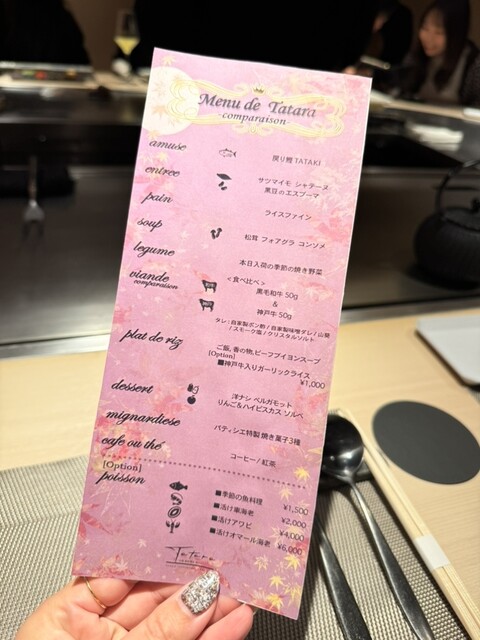 Menu de Tatara
comparaison
amuse
戻り鰹 TATAKI
entree
サツマイモ シャテーヌ
黒豆のエスプーマ
pain
ライスファイン
soup
松茸 フォアグラ コンソメ
legume
本日入荷の季節の焼き野菜
viande
comparaison
＜食べ比べ＞
黒毛和牛 50g
&
神戸牛 50g
タレ：自家製ポン酢 / 自家製味噌ダレ / 山葵
/ スモーク塩 / クリスタルソルト
plat de riz
ご飯,香の物,ビーフブイヨンスープ
[Option]
■神戸牛入りガーリックライス
¥1,000
dessert
洋ナシ ベルガモット
りんご&ハイビスカス ソルベ
mignardiese
パティシエ特製 焼き菓子3種
cafe ou thé
コーヒー / 紅茶
[Option]
poisson
■季節の魚料理 ¥1,500
■活け車海老 ¥2,000
■活けアワビ ¥4,000
■活けオマール海老 ¥6,000
Tatara